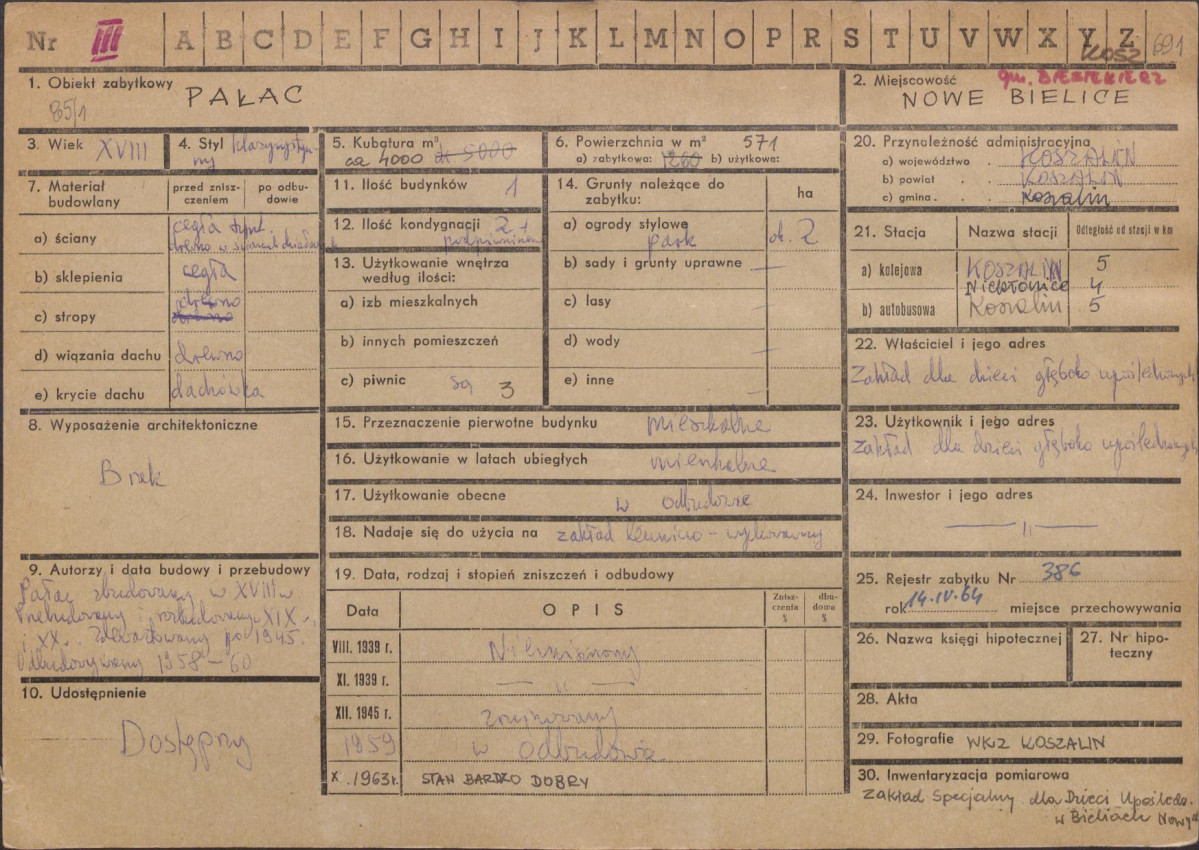 Nr III A B C D E F G H I J K L M N O P R S T U V W X Y Z 691
KOSZ
1. Obiekt zabytkowy
85/1
PAŁAC
2. Miejscowość
gm. BIESIEKIERZ
NOWE BIELICE
3. Wiek XVIII
4. Styl klasycystycz-
ny
5. Kubatura m³
ca 4000 5000
6. Powierzchnia w m² 571
a) zabytkowa: 1260 b) użytkowa:
20. Przynależność administracyjna
a) województwo KOSZALIN
b) powiat KOSZALIN
c) gmina Koszalin
7. Materiał
budowlany
przed znisz-
czeniem
po odbu-
dowie
a) ściany
cegła tynk.
drewno w
b) sklepienia cegła
c) stropy drewno
drewno
d) wiązania dachu drewno
e) krycie dachu dachówka
11. Ilość budynków 1
12. Ilość kondygnacji 2 +
podpiwniczenie
13. Użytkowanie wnętrza
według ilości:
a) izb mieszkalnych
b) innych pomieszczeń
c) piwnic są 3
14. Grunty należące do
zabytku:
ha
a) ogrody stylowe
park ok. 2
b) sady i grunty uprawne —
c) lasy —
d) wody —
e) inne —
21. Stacja Nazwa stacji Odległość od stacji w km
a) kolejowa KOSZALIN 5
Niekłonice 4
b) autobusowa Koszalin 5
22. Właściciel i jego adres
Zakład dla dzieci głęboko upośledzonych
23. Użytkownik i jego adres
Zakład dla dzieci głęboko upośledzonych
24. Inwestor i jego adres
— " —
8. Wyposażenie architektoniczne
Brak
15. Przeznaczenie pierwotne budynku mieszkalne
16. Użytkowanie w latach ubiegłych mieszkalne
17. Użytkowanie obecne w odbudowie
18. Nadaje się do użycia na zakład leczniczo-wychowawczy
9. Autorzy i data budowy i przebudowy
Pałac zbudowany w XVIII w
Przebudowany i rozbudowany XIX
i XX. Zdewastowany po 1945.
Odbudowywany 1958-60
10. Udostępnienie
Dostępny
19. Data, rodzaj i stopień zniszczeń i odbudowy
Data OPIS
Zniszczenia %
dbudowa %
VIII. 1939 r. Niezniszczony
XI. 1939 r. — " —
XII. 1945 r. zrujnowany
1959 w odbudowie
X. 1963 r. STAN BARDZO DOBRY
25. Rejestr zabytku Nr 386
rok 14.IV.64 miejsce przechowywania
26. Nazwa księgi hipotecznej
27. Nr hipo-
teczny
28. Akta
29. Fotografie WKZ KOSZALIN
30. Inwentaryzacja pomiarowa
Zakład Specjalny dla Dzieci Upośledz.
w Bielicach Nowych